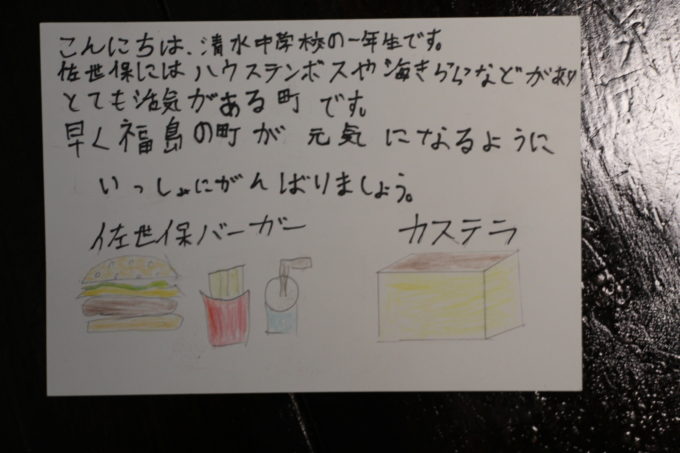 こんにちは、清水中学校の一年生です。
佐世保にはハウステンボスや海きららなどがあり
とても活気がある町です。
早く福島の町が元気になるように
いっしょにがんばりましょう。
佐世保バーガー
カステラ